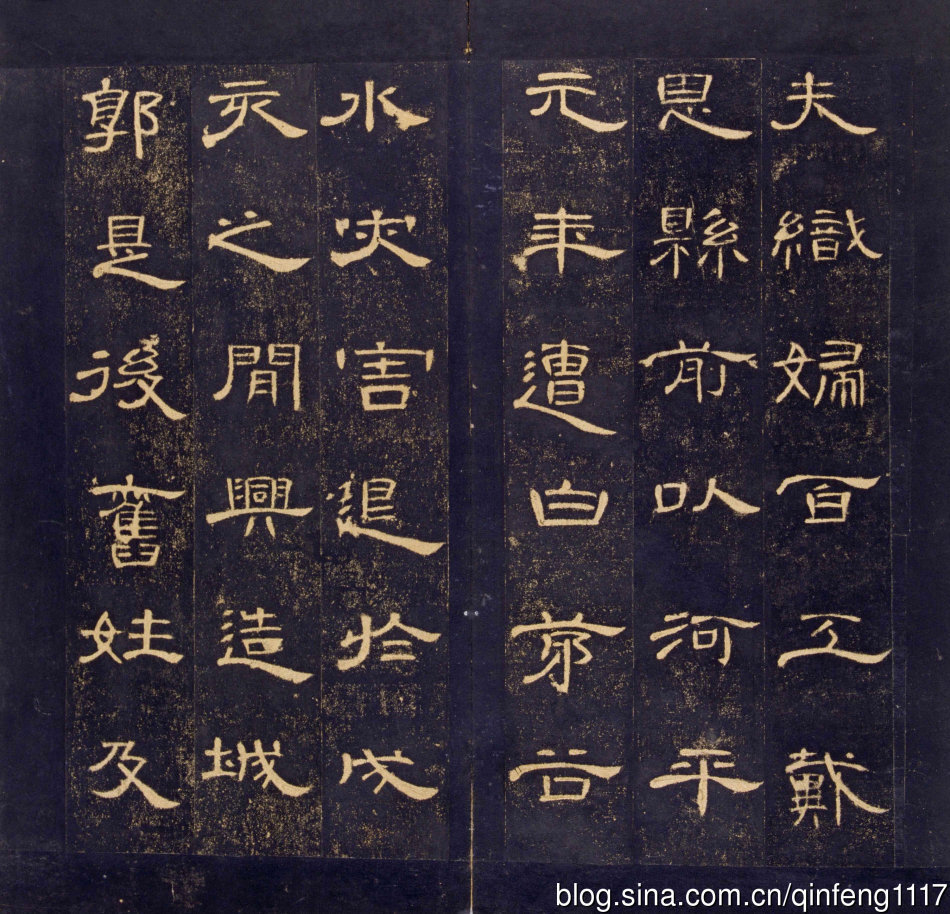 夫織婦百工戴
恩縣前以河平
元年遭白茅谷
水灾害退於戍
亥之間興造城
郭是後舊姓及
blog.sina.com.cn/qinfeng1117